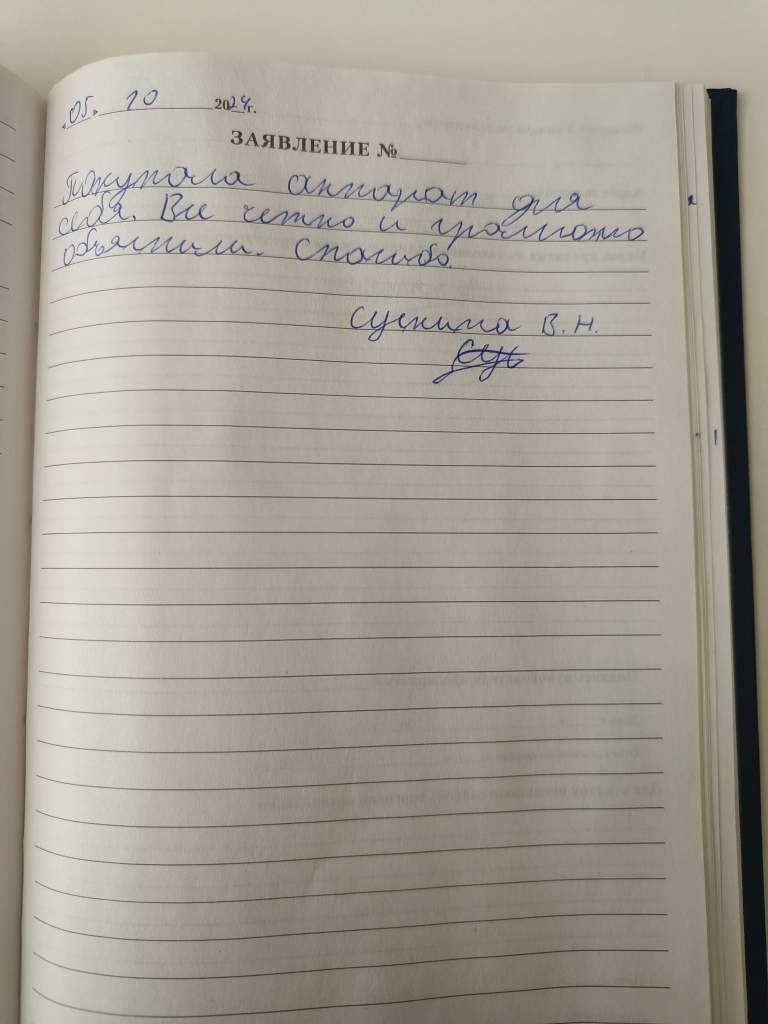 «05» 10 2024г.
ЗАЯВЛЕНИЕ №
Покупала аппарат для
себя. Все четко и грамотно
объяснили. Спасибо.
В.Н.